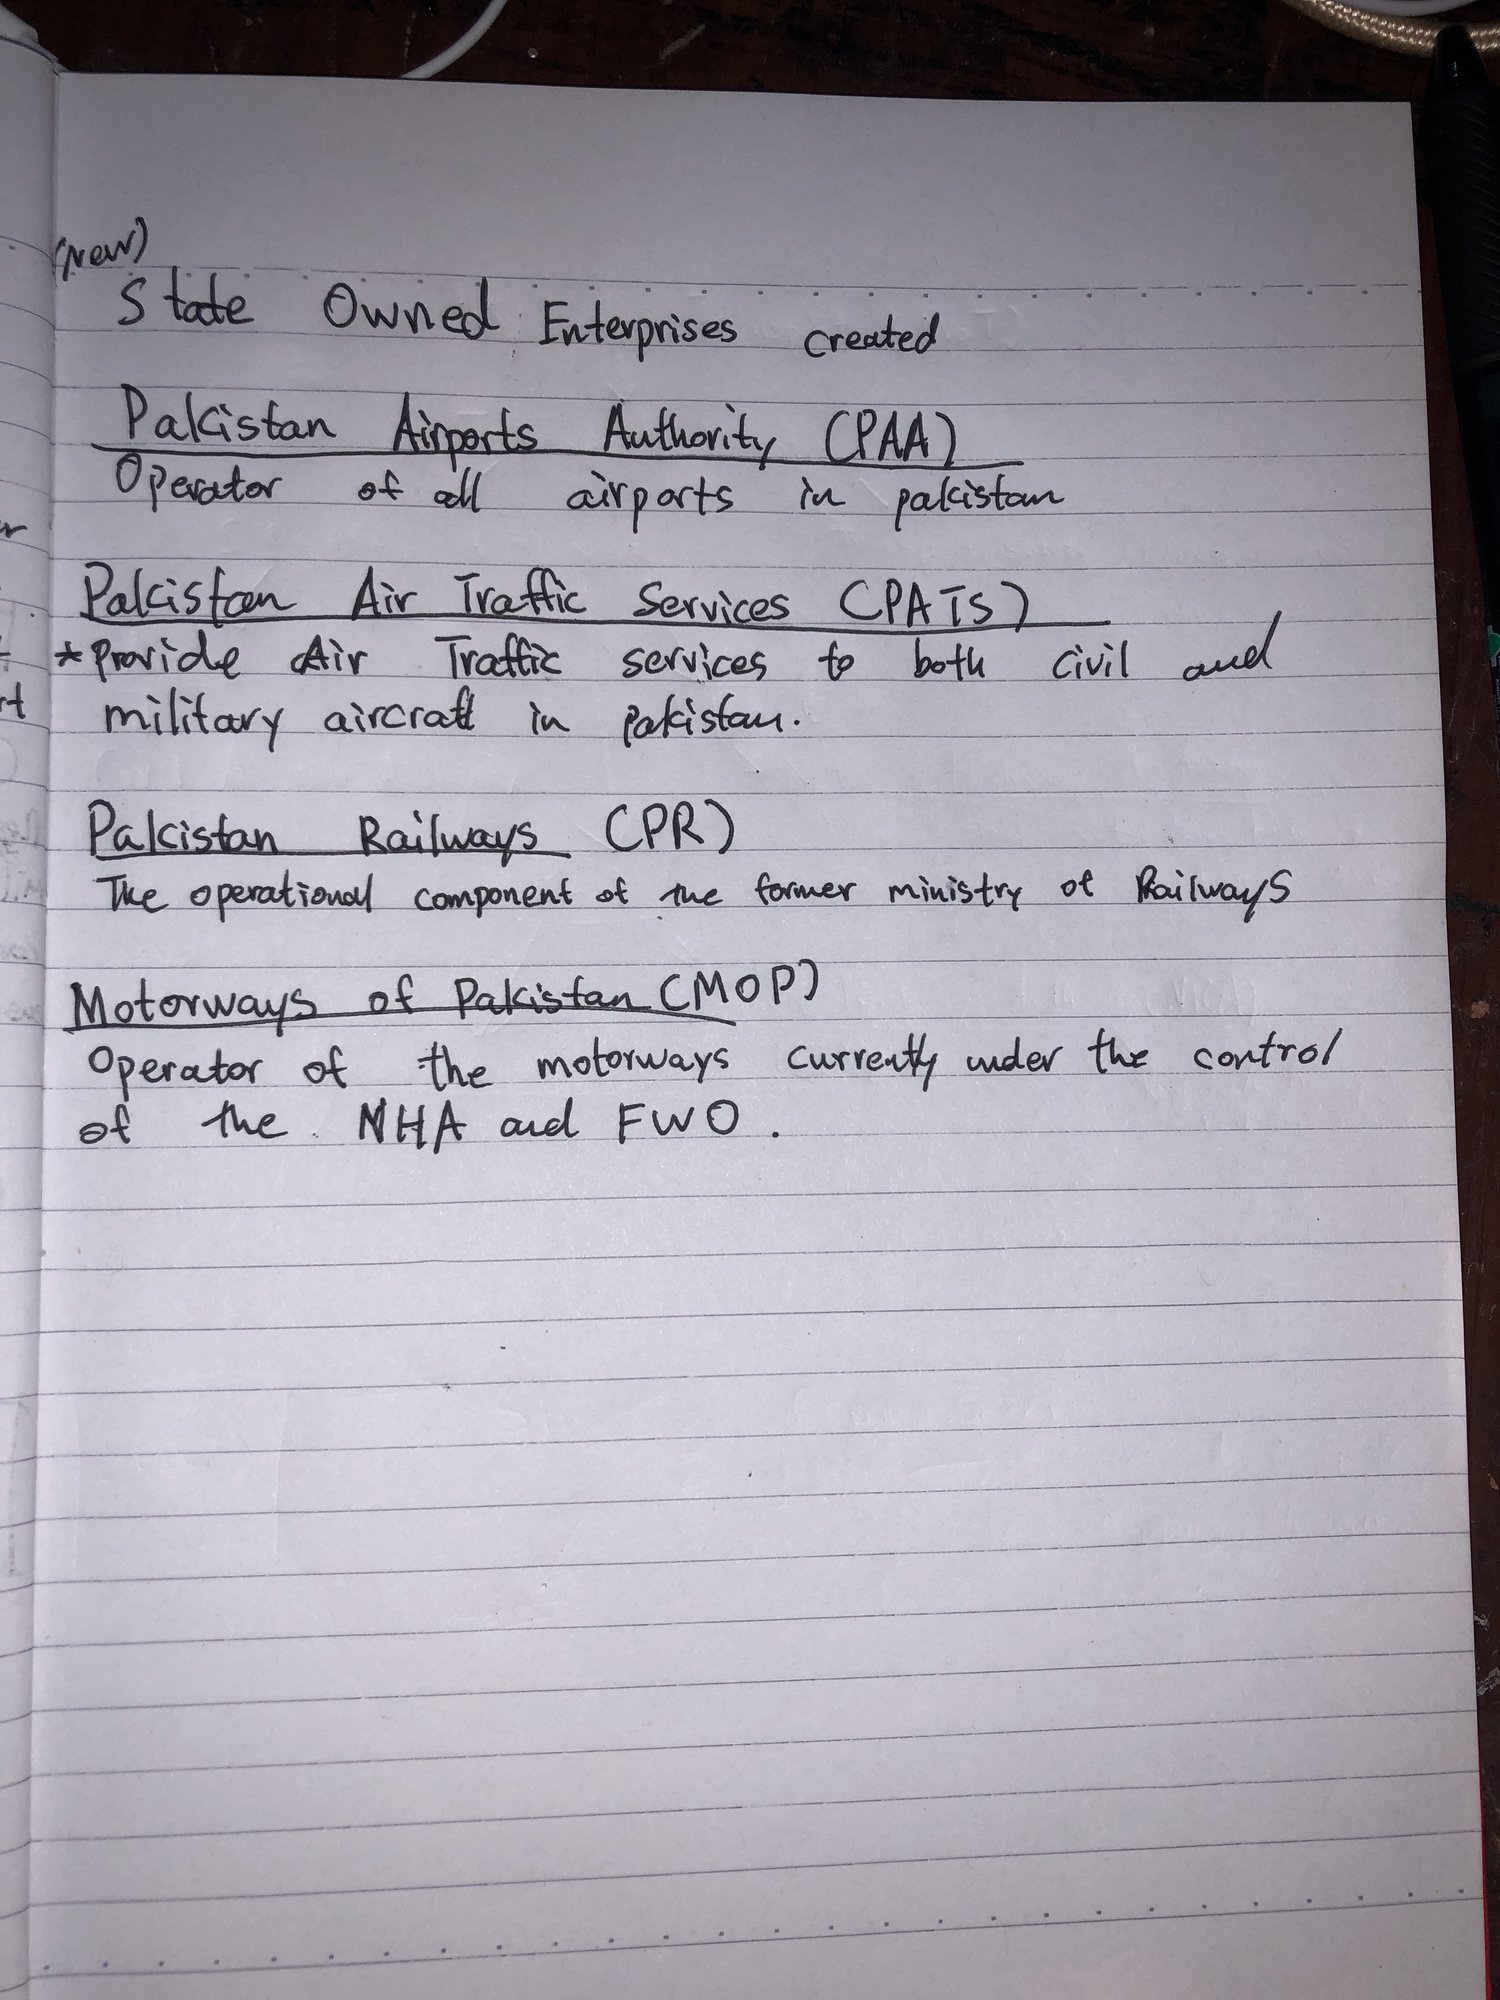 (New)
State Owned Enterprises created
Pakistan Airports Authority (PAA)
Operator of all airports in pakistan
Pakistan Air Traffic Services (PATS)
*Provide Air Traffic services to both civil and
military aircraft in pakistan.
Pakistan Railways (PR)
The operational component of the former ministry of Railways
Motorways of Pakistan (MOP)
Operator of the motorways currently under the control
of the NHA and FWO.